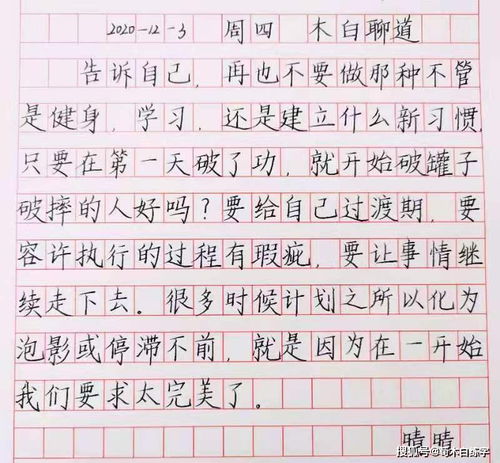 2020-12-3 周四 木白聊道
告诉自己，再也不要做那种不管
是健身，学习，还是建立什么新习惯，
只要在第一天破了功，就开始破罐子
破摔的人好吗？要给自己过渡期，要
容许执行的过程有瑕疵，要让事情继
续走下去。很多时候计划之所以化为
泡影或停滞不前，就是因为在一开始
我们要求太完美了。
晴晴
搜狐号@哥木白练字